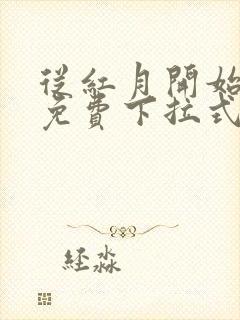 從紅月開始
免費下拉式
經淼